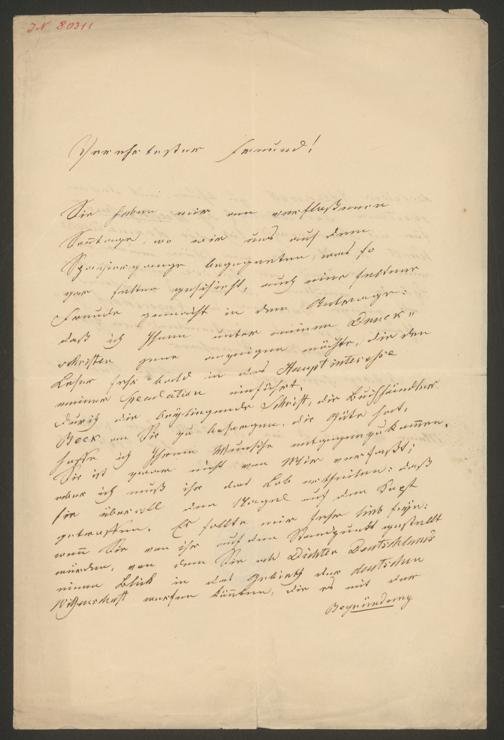 IN 8.0311
Verehrtester Freund!
Sie haben mir am verfloßenen
Sonntage, wo wir uns auf dem
Spaziergange begegneten, was so
gar selten geschieht, auch eine seltene
Freude gemacht in dem Antrage:
daß ich Ihnen unter meinen Druck-
schriften jene anzeigen möchte, die den
Leser sehr bald in das Hauptinteresse
meiner Speculation einführt.
Durch die beyliegende Schrift, die Buchhändler
Beck an Sie zu besorgen, die Güte hat,
hoffe ich Ihrem Wunsche entgegenzukommen.
Sie ist zwar nicht von Mir verfaßt;
aber ich muß ihr das Lob ertheilen: daß
sie überall den Nagel auf den Kopf
getroffen. Es sollte mir sehr lieb seyn:
wenn Sie von ihr auf den Standpunkt gestellt
würden, von dem Sie als Dichter Deutschlands
einen Blick in das Gebieth der deutschen
Wißenschaft werfen könnten, die es mit der
Begründung